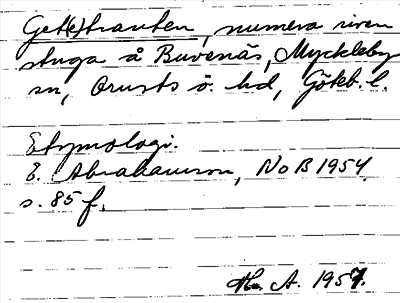 Get(e)trauten, numera riven
stuga å Buvenäs, Myckleby
sn, Orusts ö. hd, Götebl.
Etymologi.
E. Abrahamson, NoB 1954
s. 85 f.
A. 1957.